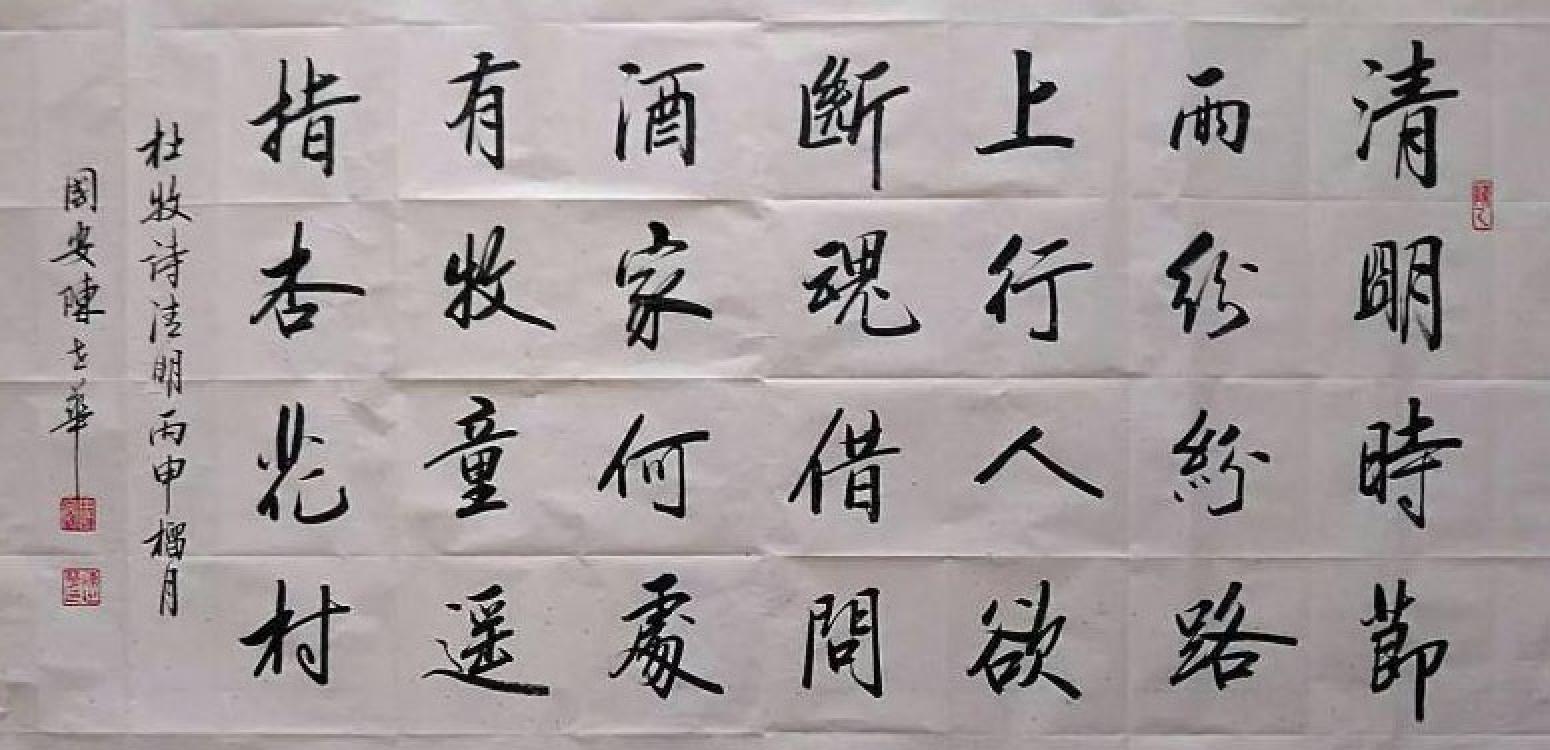 清明時節
雨紛紛路
上行人欲
斷魂借問
酒家何處
有牧童遥
指杏花村
杜牧诗清明丙申榴月
國安陳志華